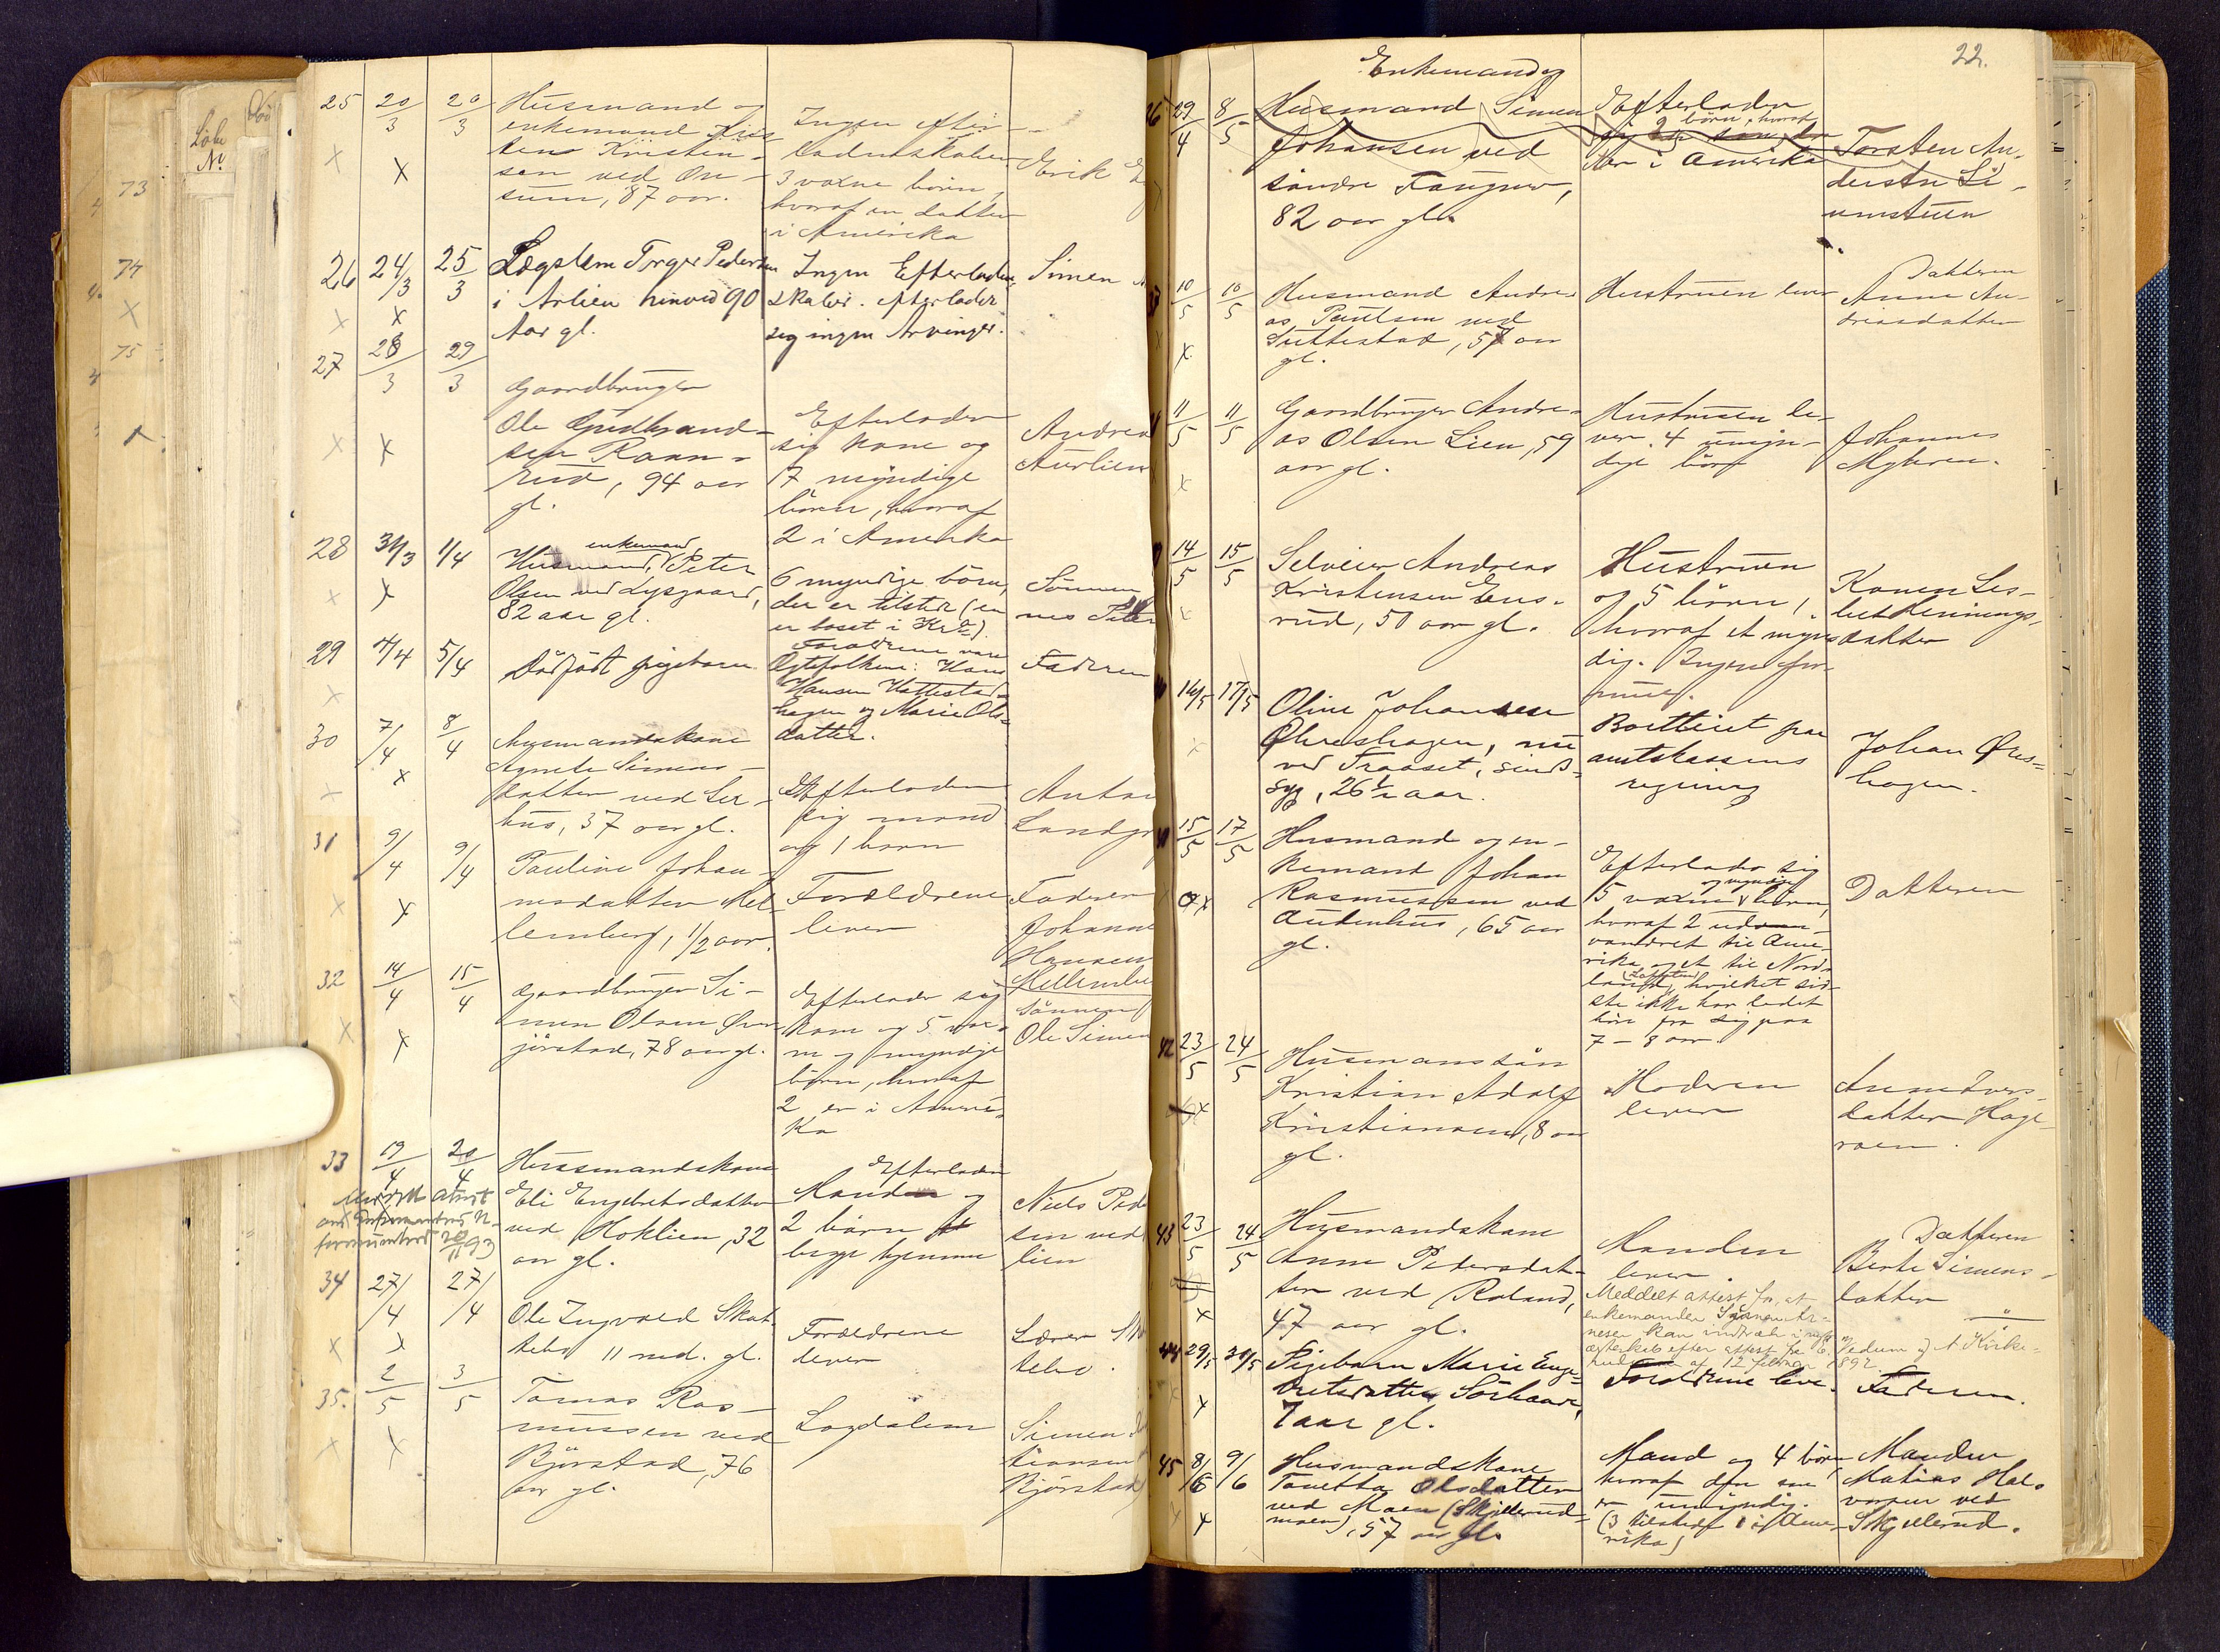 22.
Løbe
No.
73
74
75
25 20/3 20/3 Husmand og
enkemand
Kristen-
sen ved On-
sum, 87 aar.
Ingen efter-
ladenskaber
3 voxne børn,
hvoraf en datter
i Amerika
Erik
26 24/3 25/3 Lægslem Torger Pedersen
i Arlien henved 90
Aar gl.
Ingen Efterladen-
skaber. efterlader
sig ingen Arvinger.
Simen
27 28/3 29/3 Gaardbruger
Ole Gudbrand-
sen Raan-
rud, 94 aar
gl.
Efterlader
sig kone og
7 myndige
børn, hvoraf
2 i Amerika
Andrea
Aurlien
28 31/3 1/4 Husmand, enkemand Peter
Olsen ved Lysgaard,
82 aar gl.
6 myndige børn,
der er tilstede (en
er boset i Kra).
Sønnen
29 4/4 5/4 Dødfødt pigebarn
Forældrene vare
Ægtefolkene: Hans
Hansen Hattestad-
hagen og Marie Ols-
datter.
Faderen
30 7/4 8/4 Husmandskone
Agnete Simens-
datter ved Ler-
hus, 37 aar gl.
Efterlader
sig mand
og 1 barn
Anton
31 9/4 9/4 Pauline Johan-
nesdatter Mel-
lemberg, 1/2 aar.
Forældrene
lever
Faderen
Johanne
Hansen
32 14/4 15/4 Gaardbruger Si-
men Olsen
jørstad, 78 aar gl.
Efterlader sig
kone og 5 vox-
ne og myndige
børn, hvoraf
2 er i Ameri-
ka
Sønnen
Ole Simen
33 19/4 20/4 Husmandskone
Eli Engebretsdatter
ved Hoklien, 32
aar gl.
Efterlader
Mand og
2 børn
begge hjemme
Niels Ped
sen ved
lien
Meddelt attest
34 27/4 27/4 Ole Ingvald Skat-
tebo 11 md. gl.
Forældrene
lever
Lærer
tebo.
35. 2/5 3/5 Tomas Ras-
mussen ved
Bjørstad, 76
aar gl.
Lægdslem
Simen
tiansen
Bjørstad
29/4 8/5 Enkemand og
Husmand Simen
Johansen ved
søndre Faugner,
82 aar gl.
Efterlader
2 børn, hvoraf
i Amerika
Torsten An-
dersen Li-
umstuen
10/5 10/5 Husmand Andre-
as Paulsen ved
Tuttestad, 57 aar
gl.
Hustruen lever
Datteren
Anne An-
dreasdatter
11/5 11/5 Gaardbruger Andre-
as Olsen Lien, 59
aar gl.
Hustruen le-
ver. 4 umyn-
dige børn
Johannes
Myhren.
14/5 15/5 Selveier Andreas
Kristensen Ens-
rud, 50 aar gl.
Hustruen
og 5 børn,
hvoraf et myn-
dig. Ingen for-
mue.
Konen Lis-
bet Hennings-
datter
16/5 17/5 Oline Johansen
Øhreshagen, nu
ved Fraaset, sinds-
syg, 26 1/2 aar.
Bortleiet paa
amtskassens
regning
Johan Øres-
hagen.
15/5 17/5 Husmand og en-
kemand Johan
Rasmussen ved
Audenhus, 65 aar
gl.
Efterlader sig
5 voxne og myndige børn,
hvoraf 2 ud-
vandret til Ame-
rika og et til Nord-
land, (Lofoten) hvilket sid-
ste ikke har ladet
høre fra sig paa
7 - 8 aar.
Datteren
42 23/5 24/5 Husmandssøn
Kristian Adolf
Kristiansen, 8 aar
gl.
Moderen
lever
Anne Ivers-
datter Hage-
roen.
43 23/5 24/5 Husmandskone
Anne Pedersdat-
ter ved Roland,
47 aar gl.
Manden
lever.
Meddelt attest for, at
enkemanden Simen Ar-
nesen kan indtræde i nyt
ægteskab efter attest fra
af 12 februar 1892.
Datteren
Berte Simens-
datter
44 29/5 30/5 Pigebarn Marie Enge-
bretsdatter Sørhaave,
7 aar gl.
Forældrene leve.
Faderen.
45 8/6 9/6 Husmandskone
Tonetta Olsdatter
ved Moen (Skjellerud-
moen), 57 aar gl.
Mand og 4 børn
hvoraf den ene
er umyndig.
(3 tilstede 1 i Ame-
rika)
Manden
Matias Hal-
vorsen ved
Skjellerud.